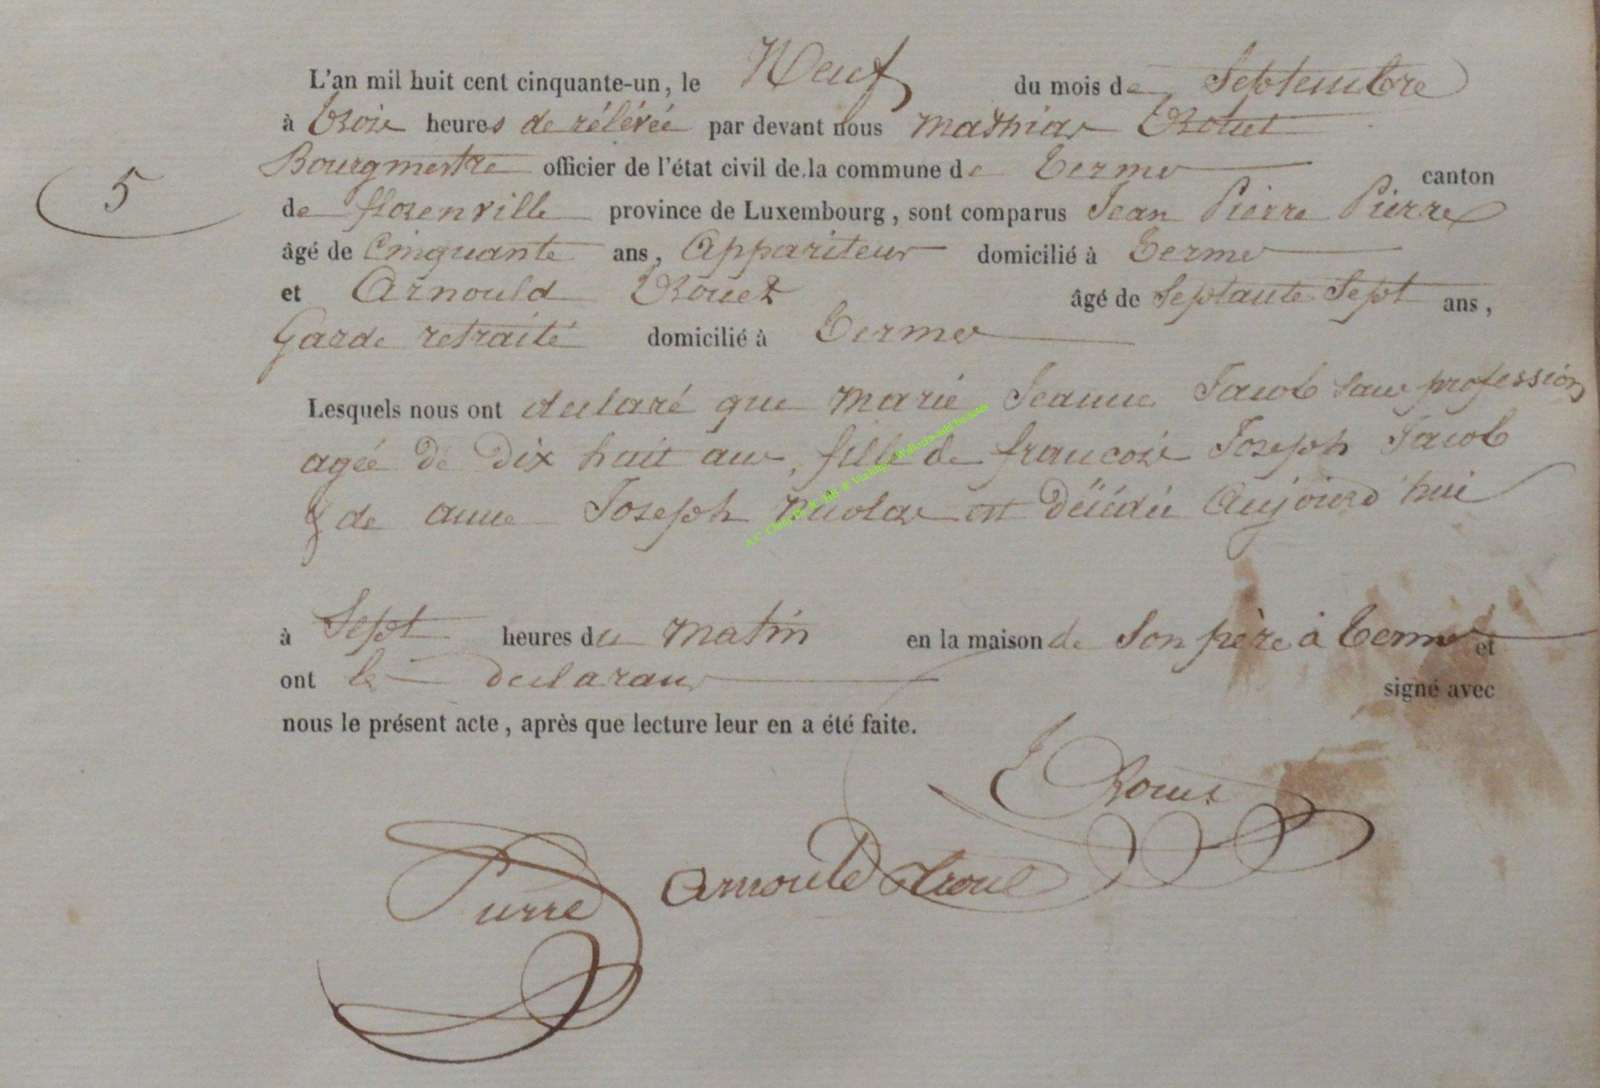 L'an mil huit cent cinquante-un, le Neuf du mois de Septembre
à trois heures de rélévée par devant nous Mathias Rouet
5
Bourgmestre officier de l'état civil de la commune de Termes canton
de florenville province de Luxembourg, sont comparus Jean Pierre Pierre
âgé de Cinquante ans, Appariteur domicilié à Termes
et Arnould Rouet âgé de Septante Sept ans,
Garde retraité domicilié à Termes
Lesquels nous ont declaré que Marie Jeanne Jacob sans profession
agée de dix huit ans, fille de francois Joseph Jacob
& de anne Joseph Nicolas est décédée Aujourd'hui
à Sept heures du matin en la maison de Son père à Termes et
ont les declarans signé avec
nous le présent acte, après que lecture leur en a été faite.
Rouet
Pierre Arnould Rouet